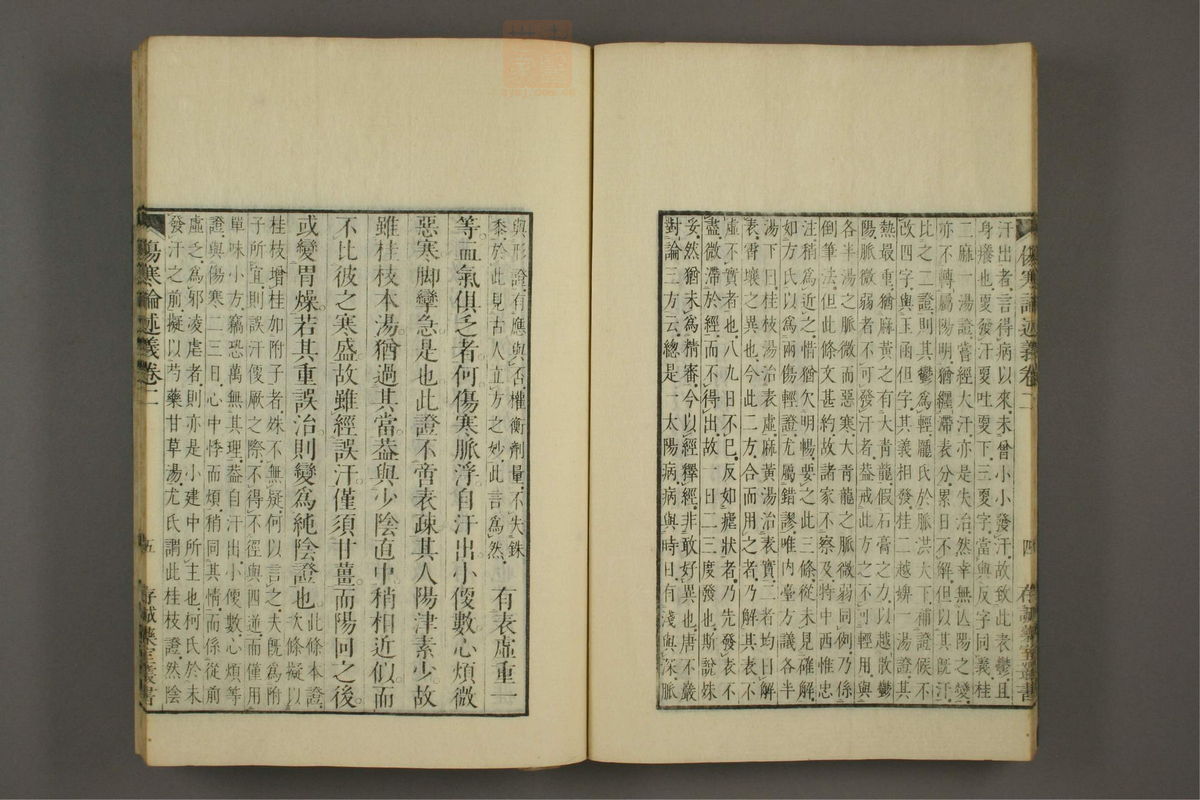 傷寒論述義卷二 四 存誠藥室叢書
汗出者言得病以來未曾小小發汗故致此表鬱且
身癢也更發汗更吐更下三更字當與反字同義桂
二麻一湯證嘗經大汗亦是失治然幸無亾陽之變
亦不轉屬陽明猶纏滯表分累日不解但以其旣汗
比之二證則其鬱爲輕龐氏於脈洪大下補證候不
改四字與玉函但字其義相發桂二越婢一湯證其
熱最重猶麻黃之有大靑龍假石膏之力以越散鬱
陽脈微弱者不可發汗者葢戒此方之不可輕用與
各半湯之脈微而惡寒大靑龍之脈微弱同例乃係
倒筆法但此條文甚約故諸家不察及特中西惟忠
注稍爲近之惜猶欠明暢要之此三條從未見確解
如方氏以爲兩傷輕證尤屬錯謬唯內臺方議各半
湯下曰桂枝湯治表虛麻黃湯治表實二者均曰解
表霄壤之異也今此二方合而用之者乃解其表不
虛不實者也八九日不已反如瘧狀者乃先發表不
盡微滯於經而不得出故一日二三度發也斯說殊
妥然猶未爲精審今以經釋經非敢好異也唐不巖
對論三方云總是一太陽病病與時日有淺與深脈
與形證有應與否權衡劑量不失銖
黍於此見古人立方之妙此言爲然 有表虛重一
等血氣俱乏者何傷寒脈浮自汗出小便數心煩微
惡寒脚攣急是也此證不啻表疎其人陽津素少故
雖桂枝本湯猶過其當葢與少陰直中稍相近似而
不比彼之寒盛故雖經誤汗僅須甘薑而陽回之後
或變胃燥若其重誤治則變爲純陰證也 此條本證次條擬以
桂枝增桂如附子者殊不無疑何以言之夫旣爲附
子所宜則誤汗便厥之際不得不徑與四逆而僅用
單味小方竊恐萬無其理葢自汗出小便數心煩等
證與傷寒二三日心中悸而煩稍同其情而係從前
虛之爲邪凌虐者則亦是小建中所主也柯氏於未
發汗之前擬以芍藥甘草湯尤氏謂此桂枝證然陰
傷寒論述義卷二 五 存誠藥室叢書